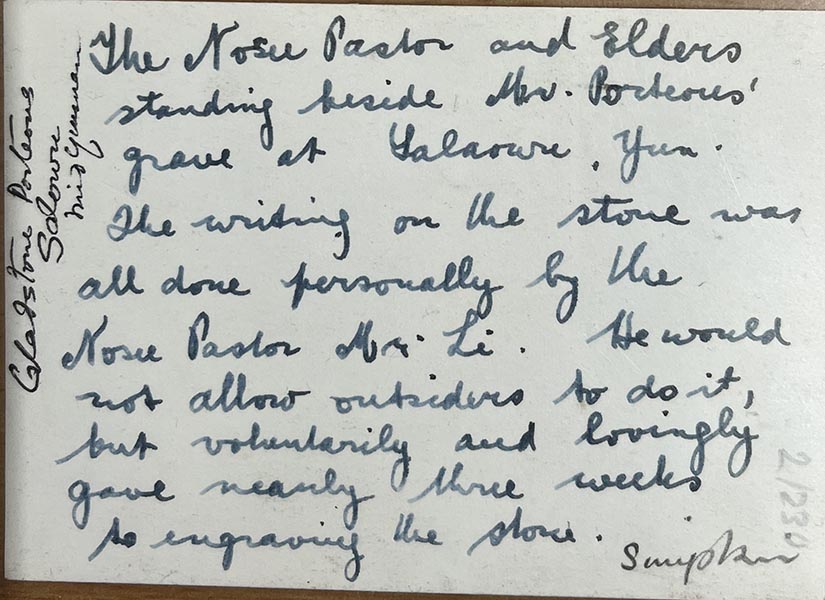 The Nosu Pastor and Elders
standing beside Mr. Porteous'
grave at Salaowu, Yun.
The writing on the stone was
all done personally by the
Nosu Pastor Mr. Li. He would
not allow outsiders to do it,
but voluntarily and lovingly
gave nearly three weeks
to engraving the stone.
Simpkin
Gladstone Porteous
Salowu
mid Yunnan
2/230